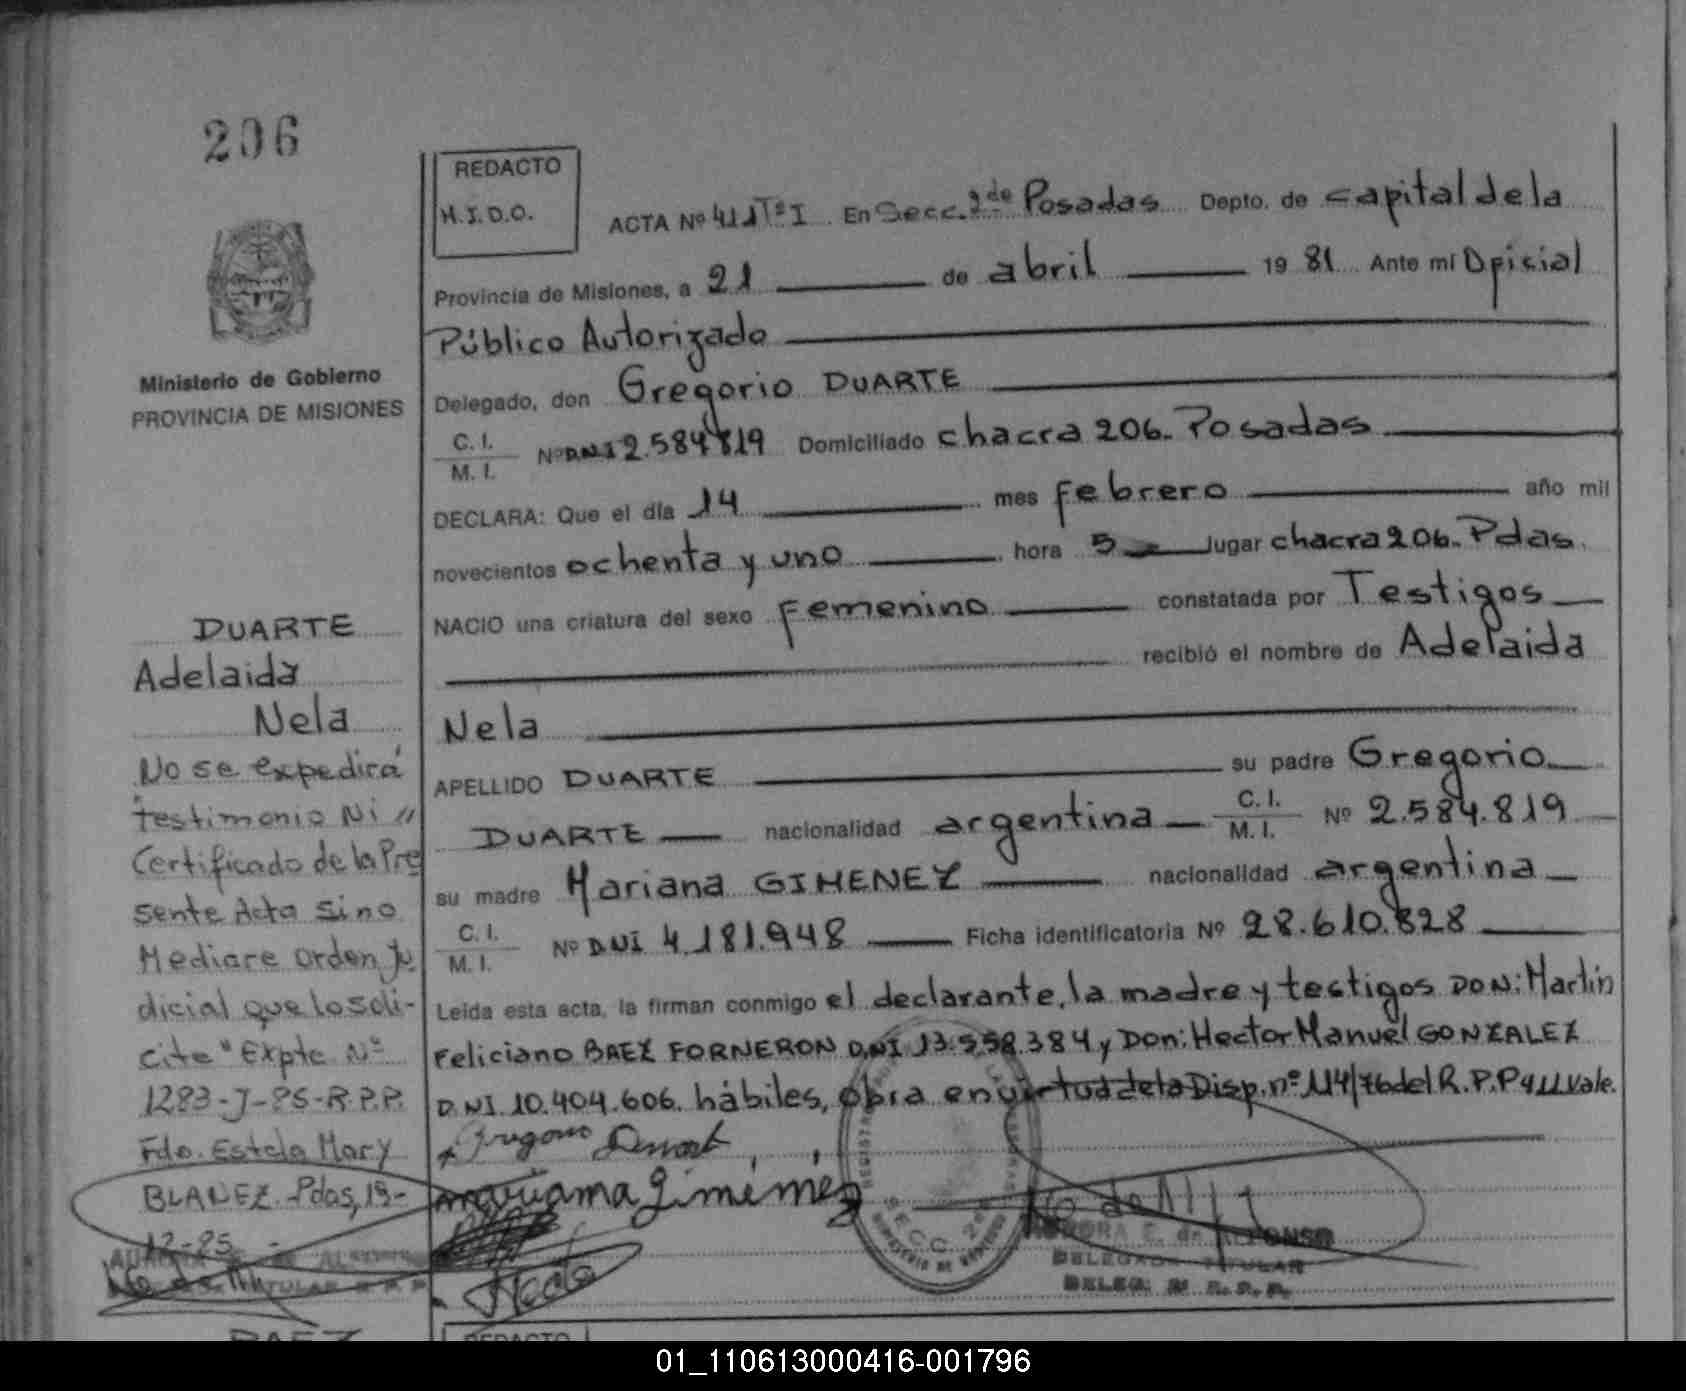 206
REDACTO
M.I.D.O.
ACTA Nº 411 Tº I En Secc. 2da Posadas Depto. de capital de la
Provincia de Misiones, a 21 de abril 19 81 Ante mí Oficial
Público Autorizado
Delegado, don Gregorio DUARTE
C. I.
M. I.
Nº D.N.I 2.584.819 Domiciliado chacra 206. Posadas
DECLARA: Que el día 14 mes febrero año mil
novecientos ochenta y uno hora 5 lugar chacra 206. Pdas.
NACIO una criatura del sexo femenino constatada por Testigos
recibió el nombre de Adelaida
Nela
APELLIDO DUARTE su padre Gregorio
DUARTE nacionalidad argentina C. I. M. I. Nº 2.584.819
su madre Mariana GIMENEZ nacionalidad argentina
C. I.
M. I.
Nº D.N.I 4.181.948 Ficha identificatoria Nº 28.610.828
Leída esta acta, la firman conmigo el declarante, la madre y testigos DON: Martin
Feliciano BAEZ FORNERON D.N.I 13.558.384 y Don: Hector Manuel GONZALEZ
D.N.I. 10.404.606. hábiles, obra en virtud de la Disp. nº 114/76 del R.P.P 411 vale.
Gregorio Duarte
mariana Gimenez
SECC. 2da
AURORA E. de ALFONSO
DELEGADA TITULAR
DELEG. 2ª R. P. P.
Ministerio de Gobierno
PROVINCIA DE MISIONES
DUARTE
Adelaida
Nela
No se expedirá
testimonio Ni //
Certificado de la Pre
sente Acta sino
Mediare orden Ju
dicial que lo soli-
cite" Expte Nº
1283-J-85-R.P.P.
Fdo. Estela Mary
BLANEZ. Pdas, 19-
12-85 -
BAEZ
REDACTO
01_110613000416-001796